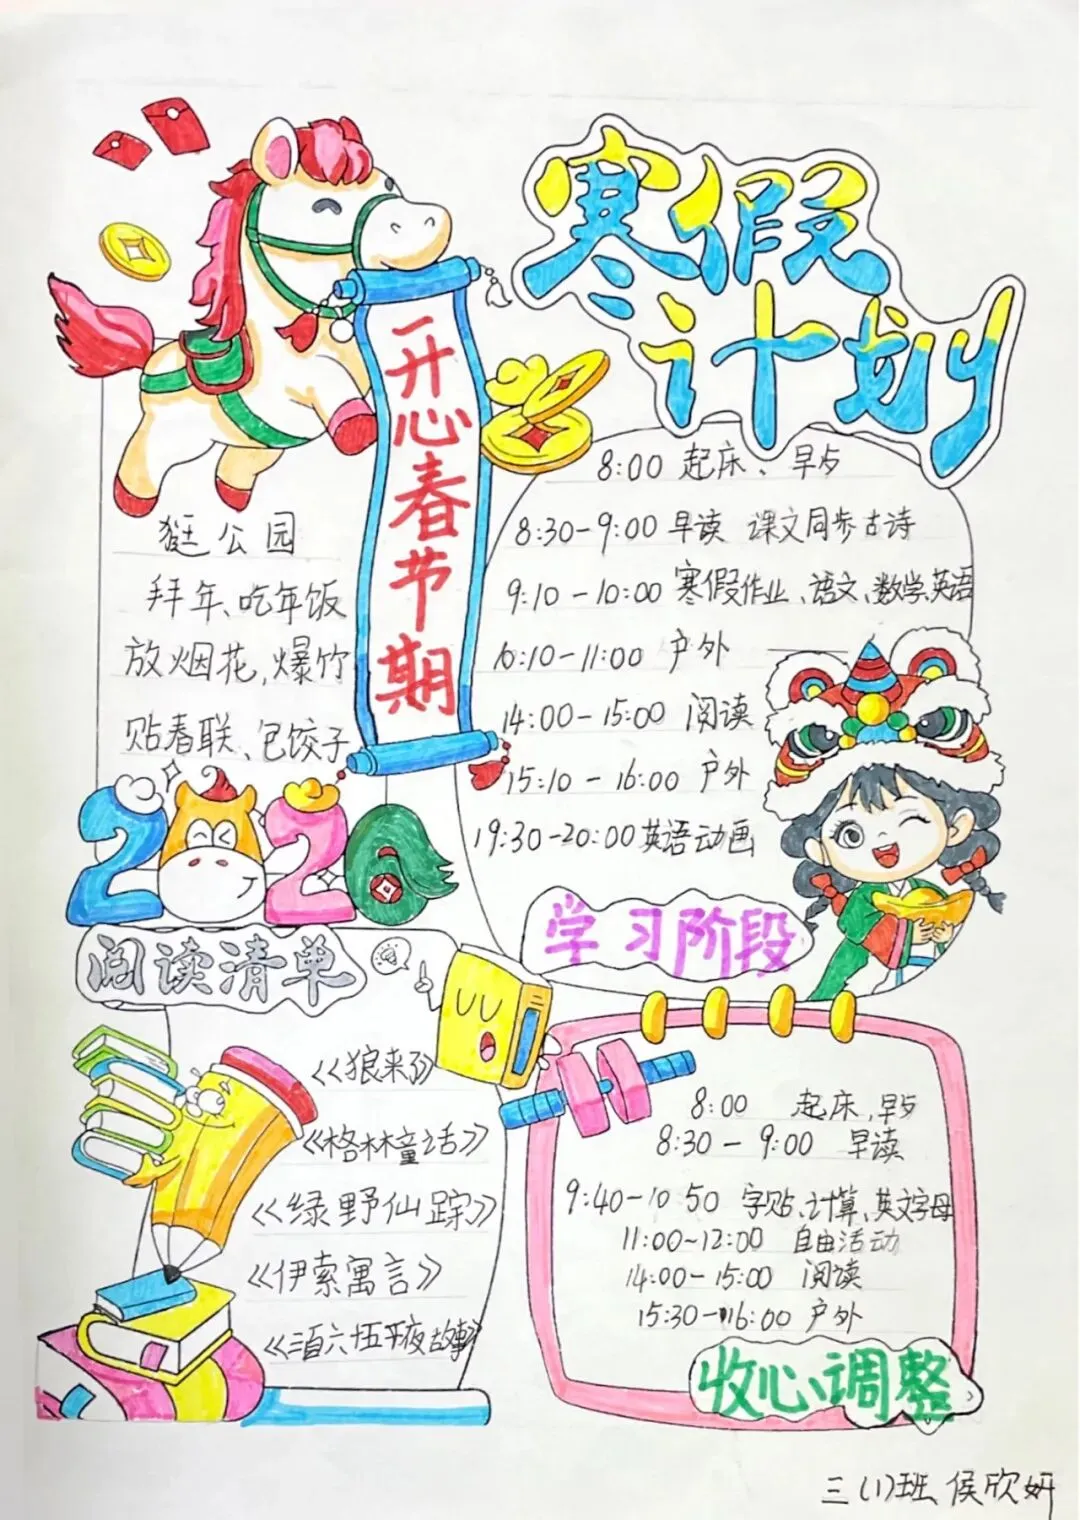 寒假
计划
开心春节期
逛公园
拜年、吃年饭
放烟花,爆竹
贴春联、包饺子
2026
8:00 起床、早夕
8:30-9:00 早读 课文同步古诗
9:10-10:00 寒假作业、语文、数学、英语
10:10-11:00 户外
14:00-15:00 阅读
15:10-16:00 户外
19:30-20:00 英语动画
学习阶段
阅读清单
《狼来了》
《格林童话》
《绿野仙踪》
《伊索寓言》
8:00 起床,早夕
8:30-9:00 早读
9:40-10 50 字贴、计算、英文字母
11:00~12:00 自由活动
14:00-15:00 阅读
15:30-16:00 户外
收心调整
三(1)班、侯欣妍